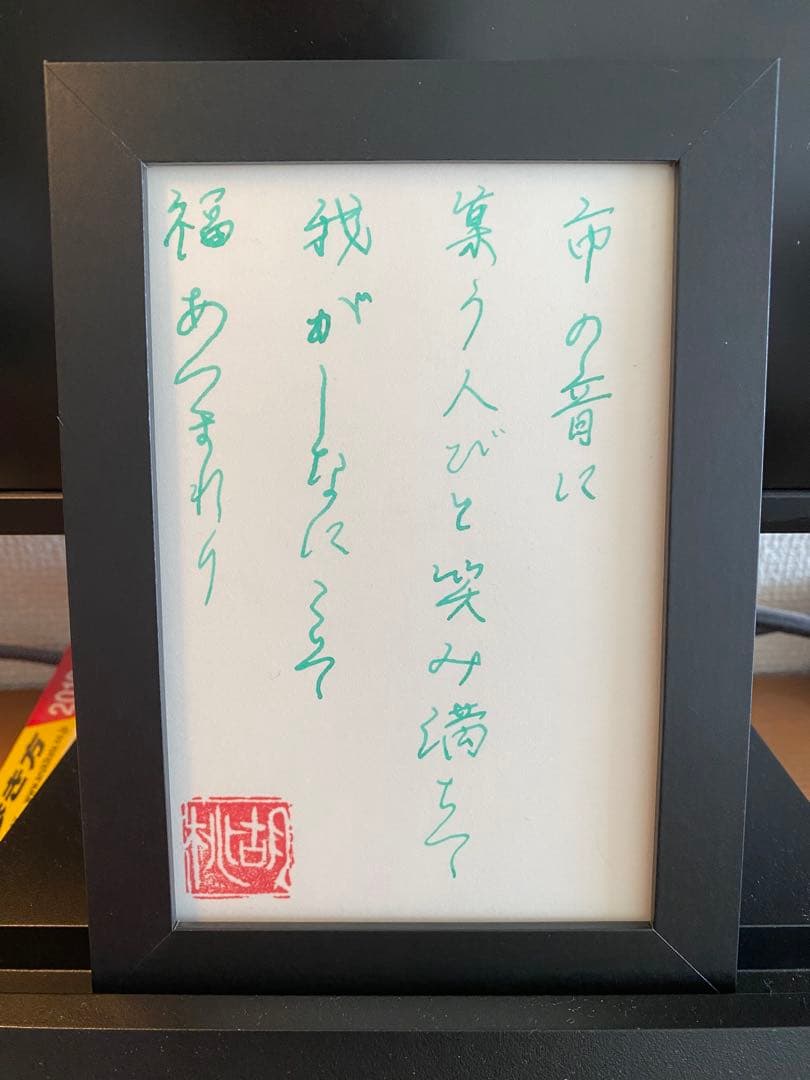 市の音に
集う人びと笑み満ちて
我がしなにこそ
福あつまれり
胡桃
き方